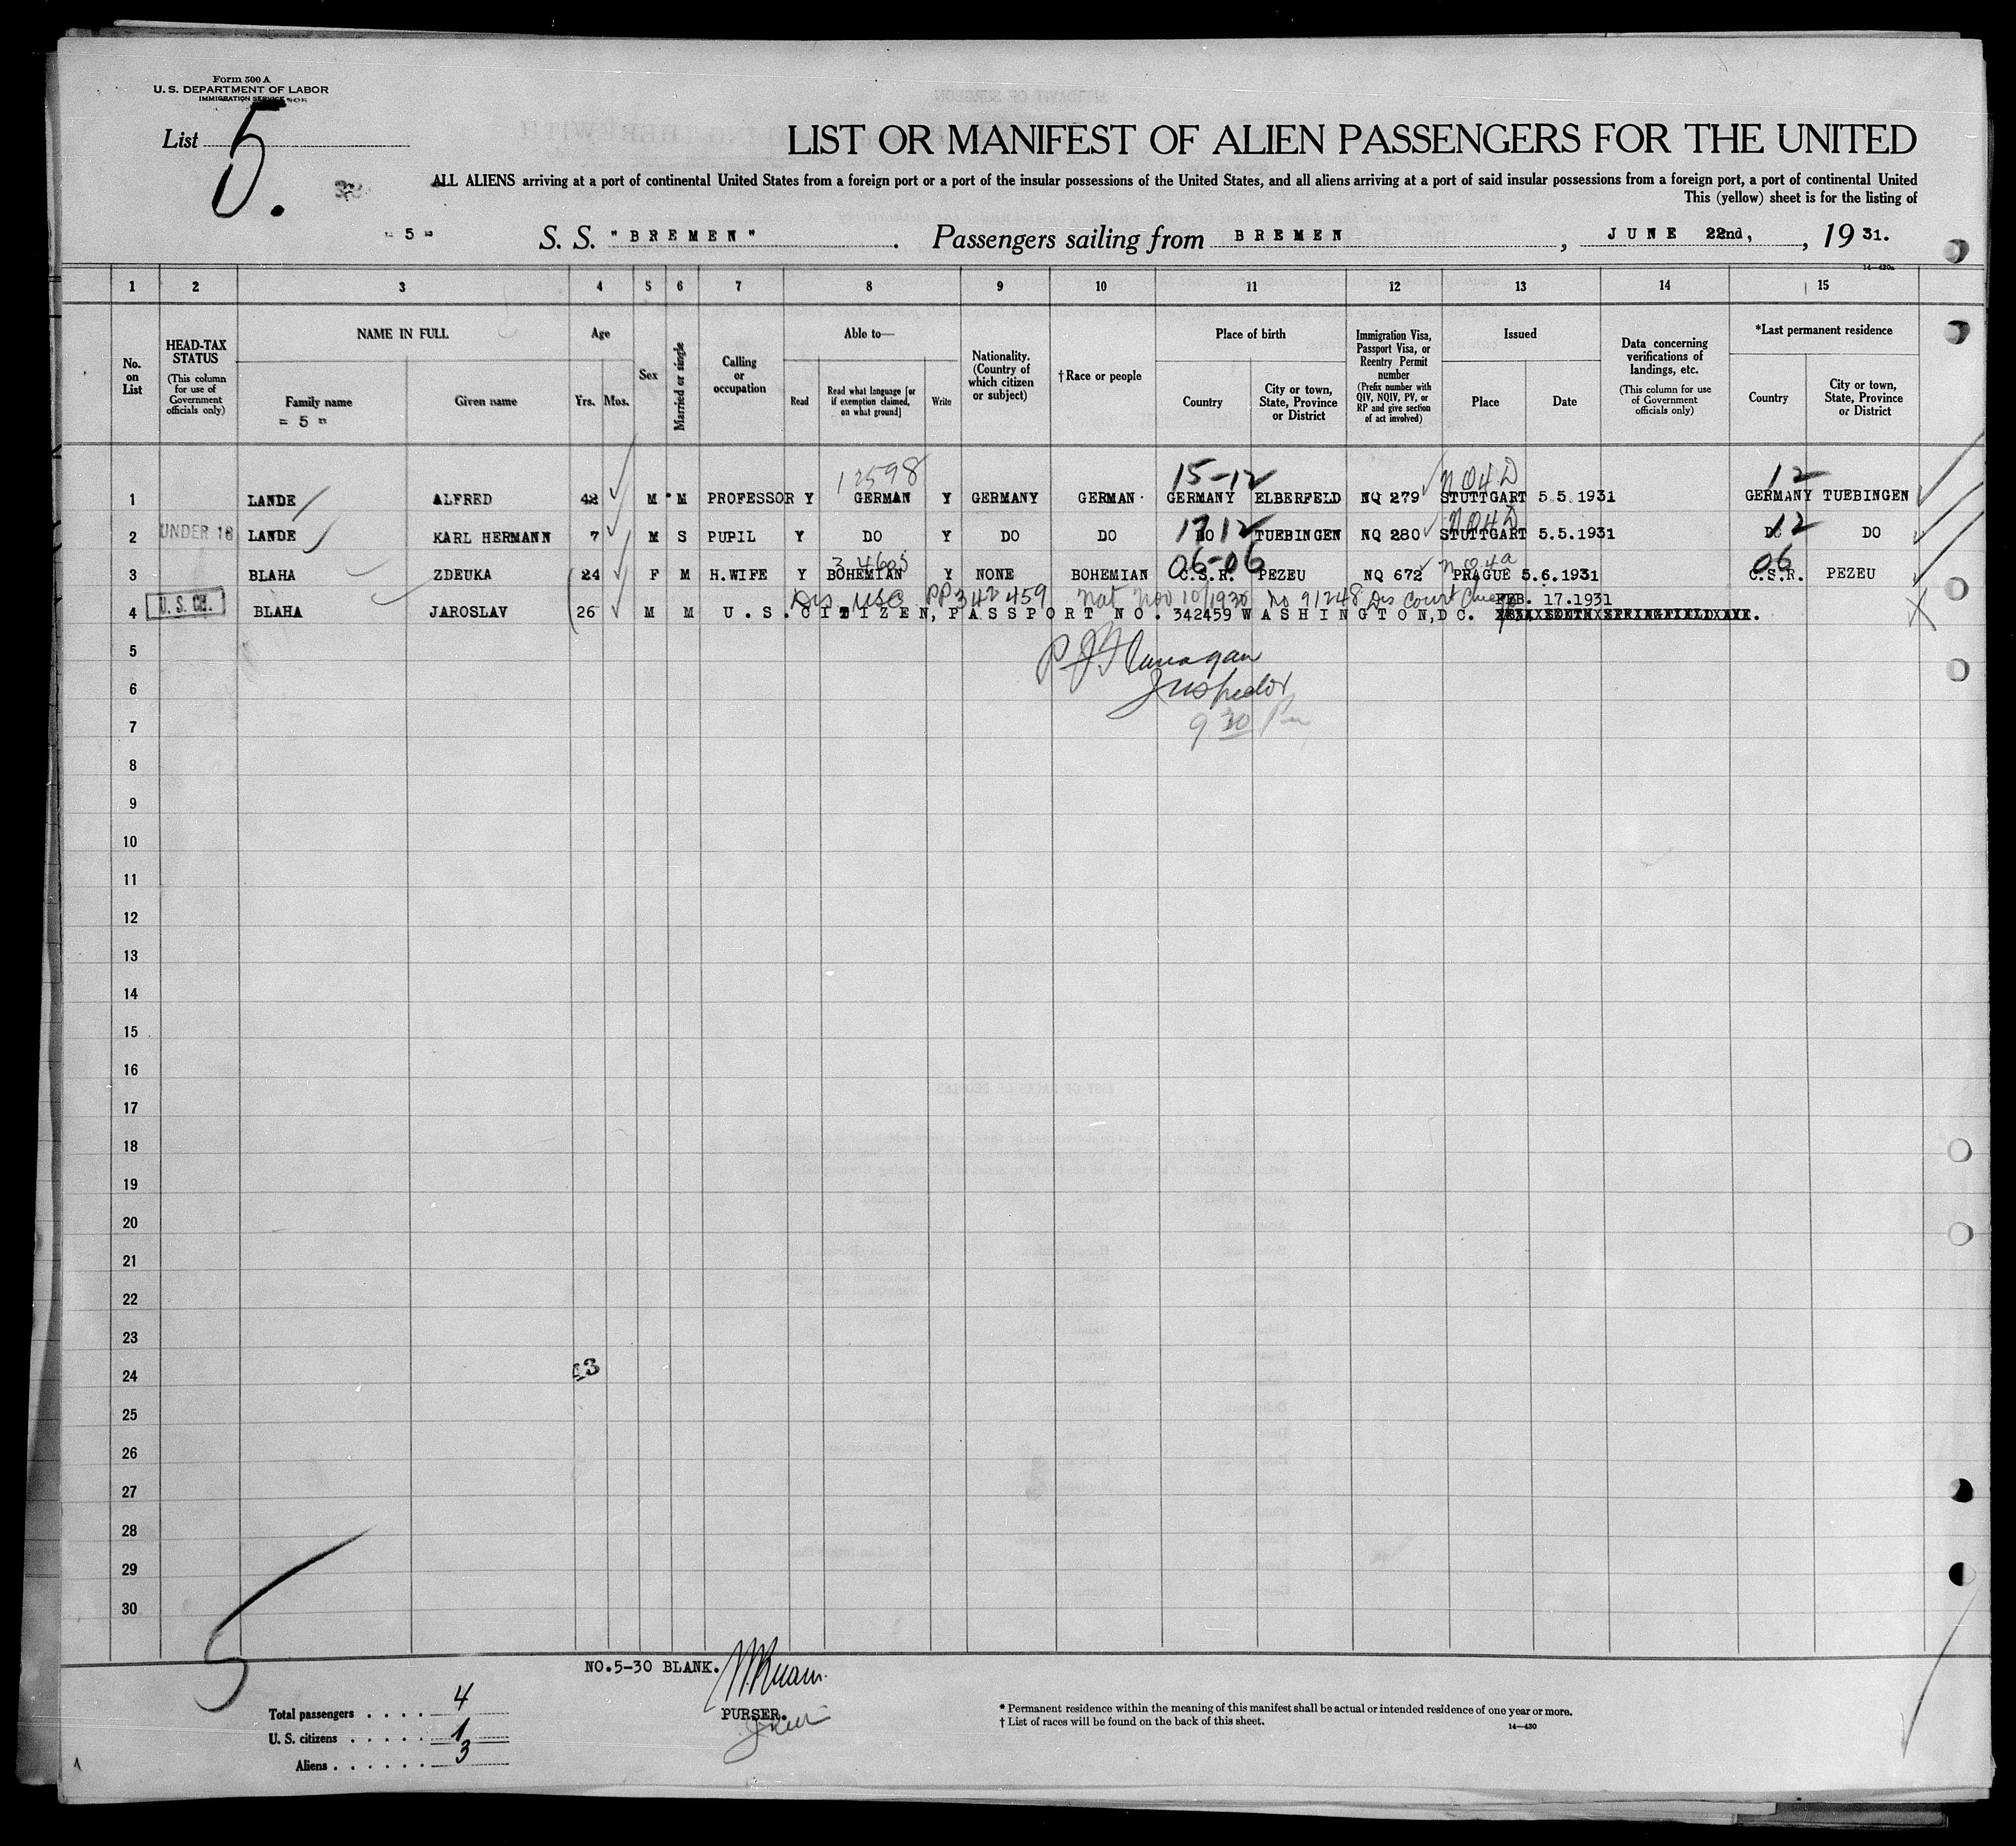 Form 500 A
U. S. DEPARTMENT OF LABOR
IMMIGRATION SERVICE
List 5.
LIST OR MANIFEST OF ALIEN PASSENGERS FOR THE UNITED
ALL ALIENS arriving at a port of continental United States from a foreign port or a port of the insular possessions of the United States, and all aliens arriving at a port of said insular possessions from a foreign port, a port of continental United
This (yellow) sheet is for the listing of
- 5 - S. S. "BREMEN" . Passengers sailing from BREMEN , JUNE 22nd, , 19 31.
14—430a
1 2 3 4 5 6 7 8 9 10 11 12 13 14 15
No. on List
HEAD-TAX STATUS (This column for use of Government officials only)
NAME IN FULL
Family name
= 5 =
Given name
Age
Yrs. Mos.
Sex
Married or single
Calling or occupation
Able to—
Read
Read what language [or if exemption claimed, on what ground]
Write
Nationality. (Country of which citizen or subject)
† Race or people
Place of birth
Country
City or town, State, Province or District
Immigration Visa, Passport Visa, or Reentry Permit number (Prefix number with QIV, NQIV, PV, or RP and give section of act involved)
Issued
Place
Date
Data concerning verifications of landings, etc. (This column for use of Government officials only)
*Last permanent residence
Country
City or town, State, Province or District
12598 15-12 NO4D 12
1 LANDE ALFRED 42 M M PROFESSOR Y GERMAN Y GERMANY GERMAN GERMANY ELBERFELD NQ 279 STUTTGART 5.5.1931 GERMANY TUEBINGEN
17 12 NO4D 12
2 UNDER 16 LANDE KARL HERMANN 7 M S PUPIL Y DO Y DO DO DO TUEBINGEN NQ 280 STUTTGART 5.5.1931 DO DO
34605 06-06 NO4a 06
3 BLAHA ZDEUKA 24 F M H.WIFE Y BOHEMIAN Y NONE BOHEMIAN C.S.R. PEZEU NQ 672 PRAGUE 5.6.1931 C.S.R. PEZEU
Dis USC PP 342459 Nat Nov 10/1930 No 91248 Dis Court FEB. 17.1931
4 BLAHA JAROSLAV 26 M M U.S.CITIZEN, PASSPORT NO. 342459 WASHINGTON, DC.
P J Flanagan
5
Inspector
6
9 30 Pm
7
8
9
10
11
12
13
14
15
16
17
18
19
20
21
22
23
24
25
26
27
28
29
30
NO.5-30 BLANK.
PURSER.
Total passengers . . . . 4
U. S. citizens . . . . . 1
Aliens . . . . . . 3
* Permanent residence within the meaning of this manifest shall be actual or intended residence of one year or more.
† List of races will be found on the back of this sheet.
14—430